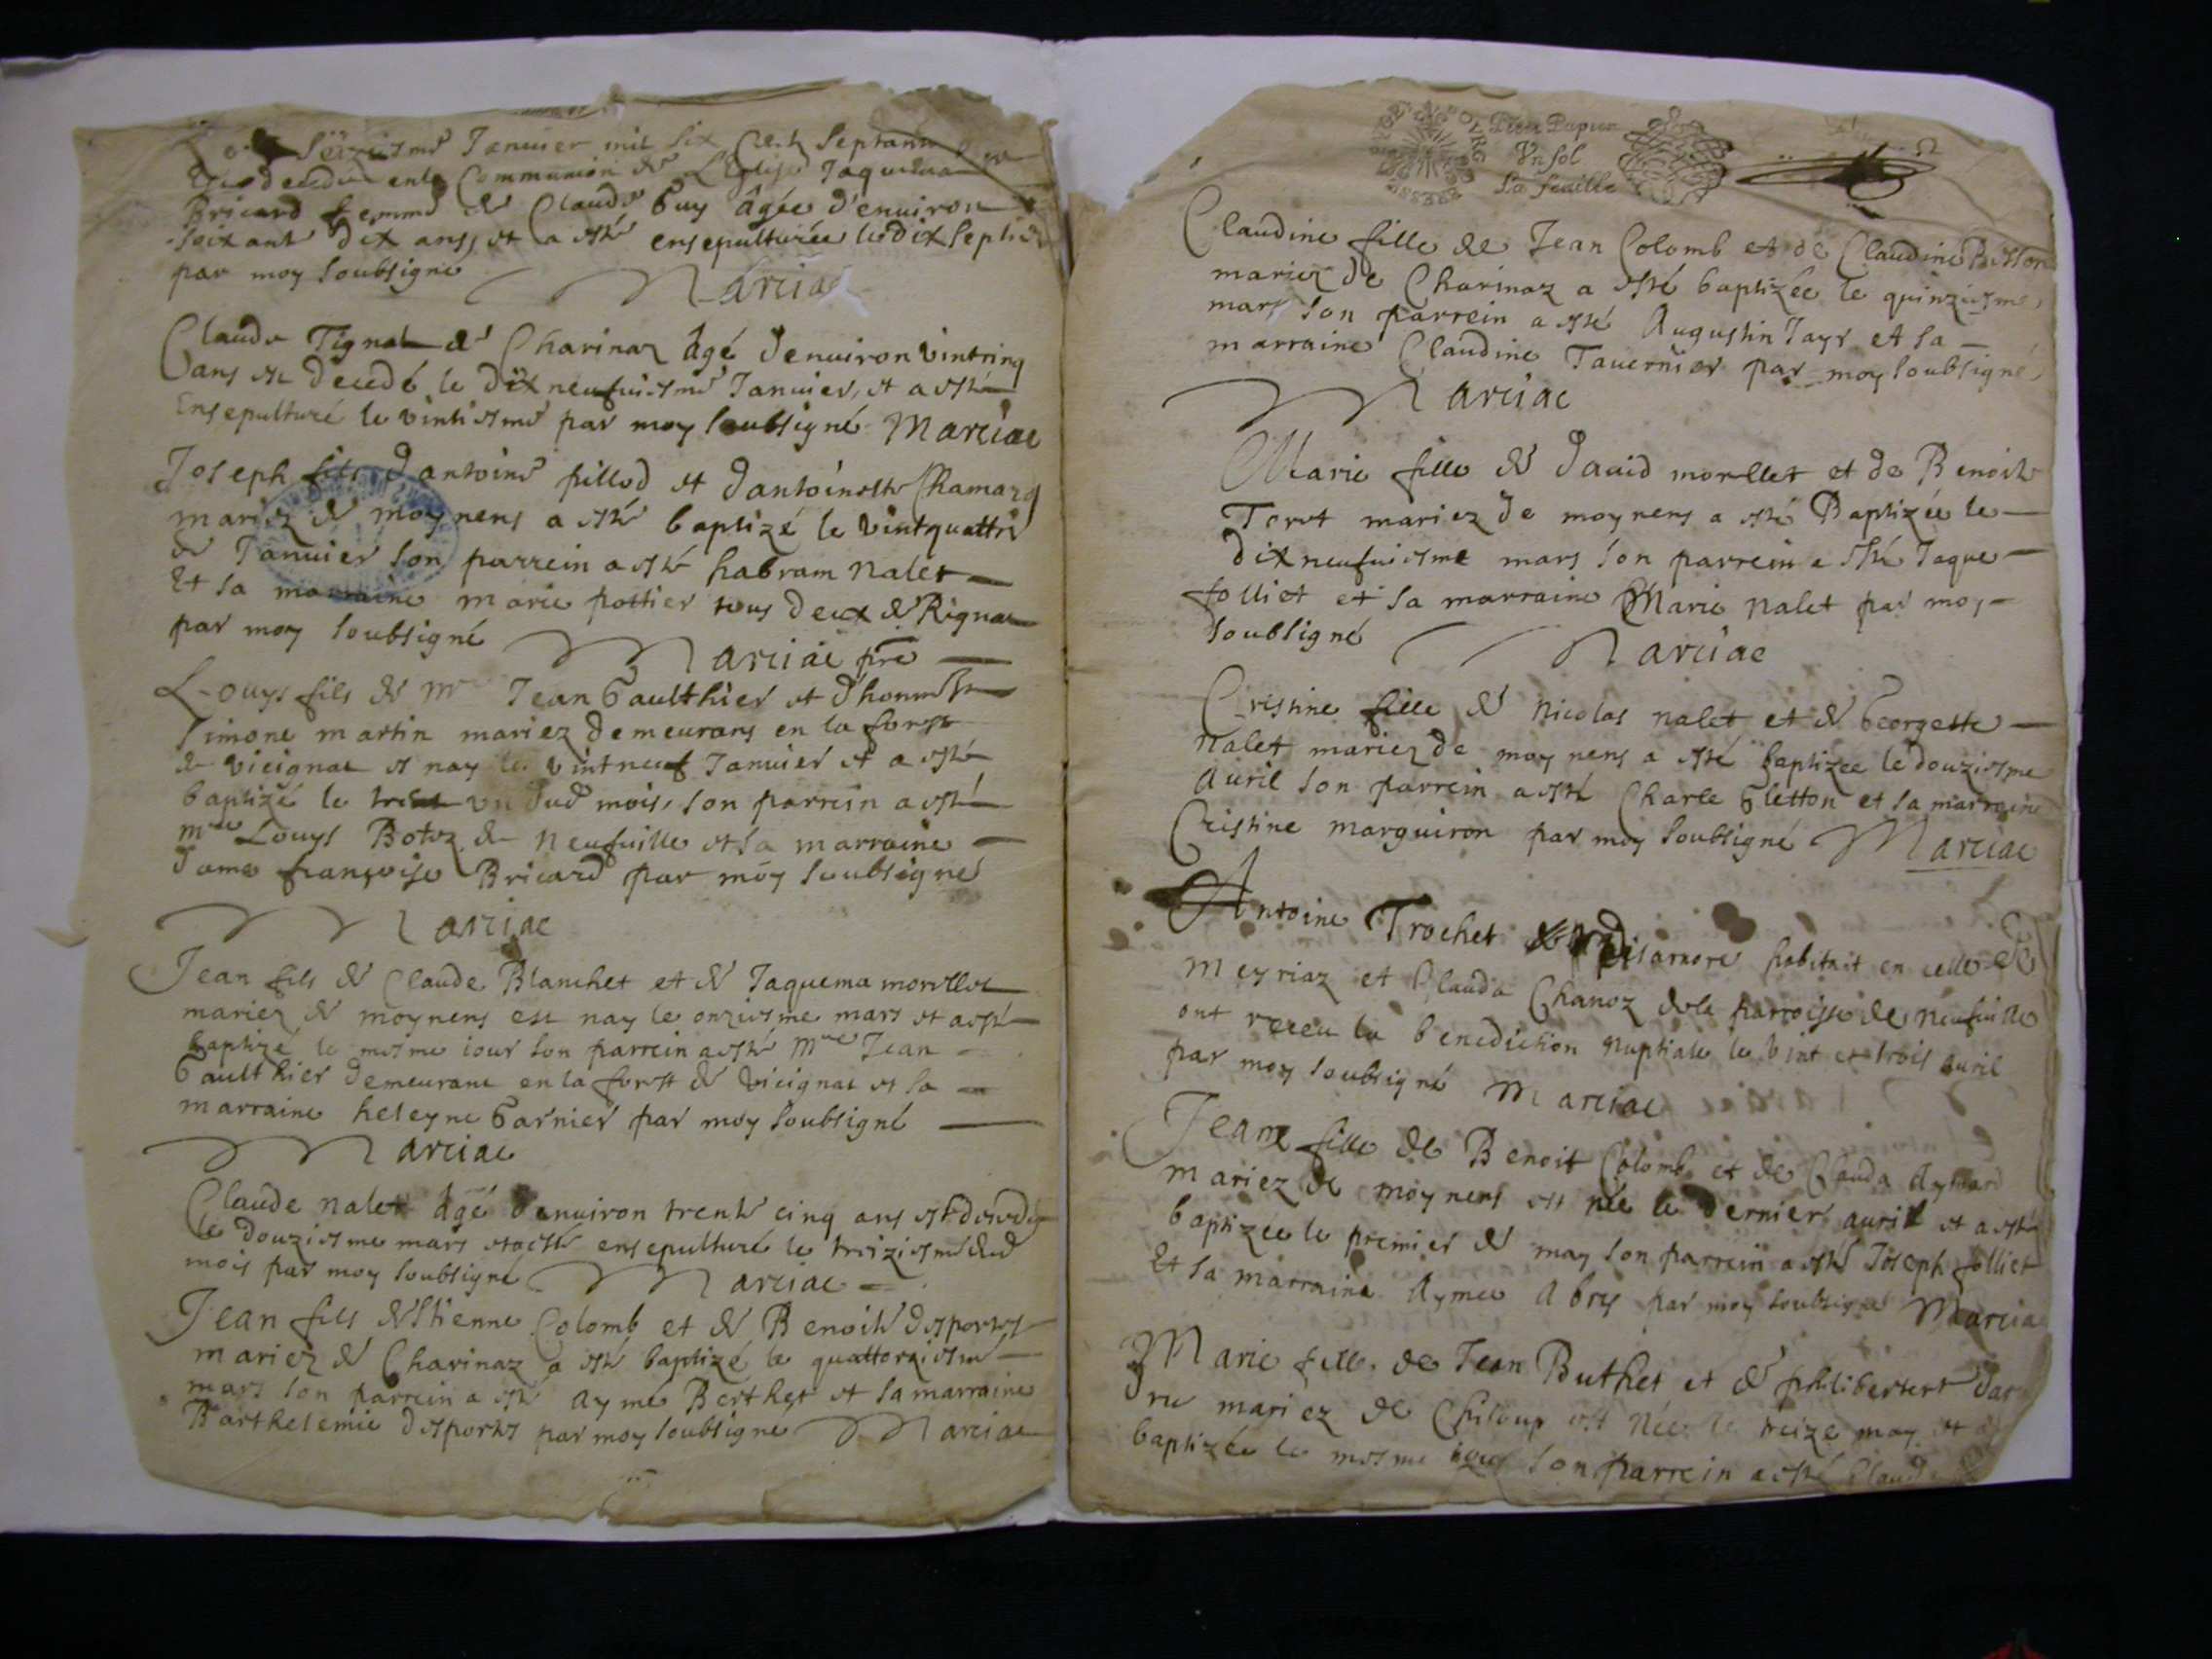 Seizieme Janvier mil six Cent Septante
decedee en la Communion de L'Eglise Jaquema
Bricard femme de Claude Guy âgée d'environ
soixante dix ans, et a esté ensepulturée le dix septie
par moy soubsigné Marciac
Claude Tignat de Charinaz âgé d'environ vintcinq
ans est decedé le dixneufuiesme Januier, et a esté
Ensepulturé le vintiesme par moy soubsigné Marciac
Joseph fils d'antoine pillod et d'antoinette Chamar
mariez de moynens a esté baptizé le vintquattre
de Januier son parrein a esté habram nalet
Et sa marraine marie pottier tous deux de Rignat
par moy soubsigné Marciac pre
Louys fils de Mre Jean Gaulthier et d'honneste
Simone martin mariez demeurans en la forest
de vicignat est nay le vintneuf Januier et a esté
baptizé le trente un dud mois, son parrein a esté
mre Louys Botoz de neufuille et sa marraine
dame françoise Bricard par moy soubsigné
Marciac
Jean fils de Claude Blanchet et de Jaquema morellet
mariez de moynens est nay le onziesme mars et a esté
baptizé le mesme iour son parrein a esté Mre Jean
Gaulthier demeurant en la forest de vicignat et sa
marraine heleyne Garnier par moy soubsigné
Marciac
Claude nalet âgé d'enuiron trente cinq ans est decedé
le douziesme mars et a esté ensepulturé le treiziesme dud
mois par moy soubsigné Marciac
Jean fils d'Estienne Colomb et de Benoite desportes
mariez de Charinaz a esté baptizé le quattorziesme
mars son parrein a esté aymé Berthet et sa marraine
Barthelemie desportes par moy soubsigné Marciac
Papier
Un sol
la feuille
Claudine fille de Jean Colomb et de Claudine Buisson
mariez de Charinaz a esté baptizée le quinziesme
mars son parrein a esté Augustin Jayr et sa
marraine Claudine Tauernier par moy soubsigné
Marciac
Marie fille de Dauid morellet et de Benoite
Terret mariez de moynens a esté Baptizée le
dixneufuiesme mars son parrein a esté Jaque
folliet et sa marraine Marie nalet par moy
soubsigné Marciac
Cristine fille de Nicolas nalet et de Georgette
nalet mariez de moynens a esté baptizee le douziesme
Auril son parrein a esté Charle Gletton et sa marraine
Cristine marguiron par moy soubsigné Marciac
Antoine Trochet habitant en celle de
meyriaz et Clauda Chanoz de la parroisse de neufuille
ont receu la benediction nuptiale le vint et trois auril
par moy soubsigné Marciac
Jeane fille de Benoit Colomb et de Clauda Aymard
mariez de moynens est née le dernier auril et a esté
baptizée le premier de may son parrein a esté Joseph folliet
Et sa marraine Aymee Abry par moy soubsigné Marcia
Marie fille de Jean Buthet et de philibert
mariez de Chiloup est née le treize may et a
baptizée le mesme iour son parrein a esté Claud